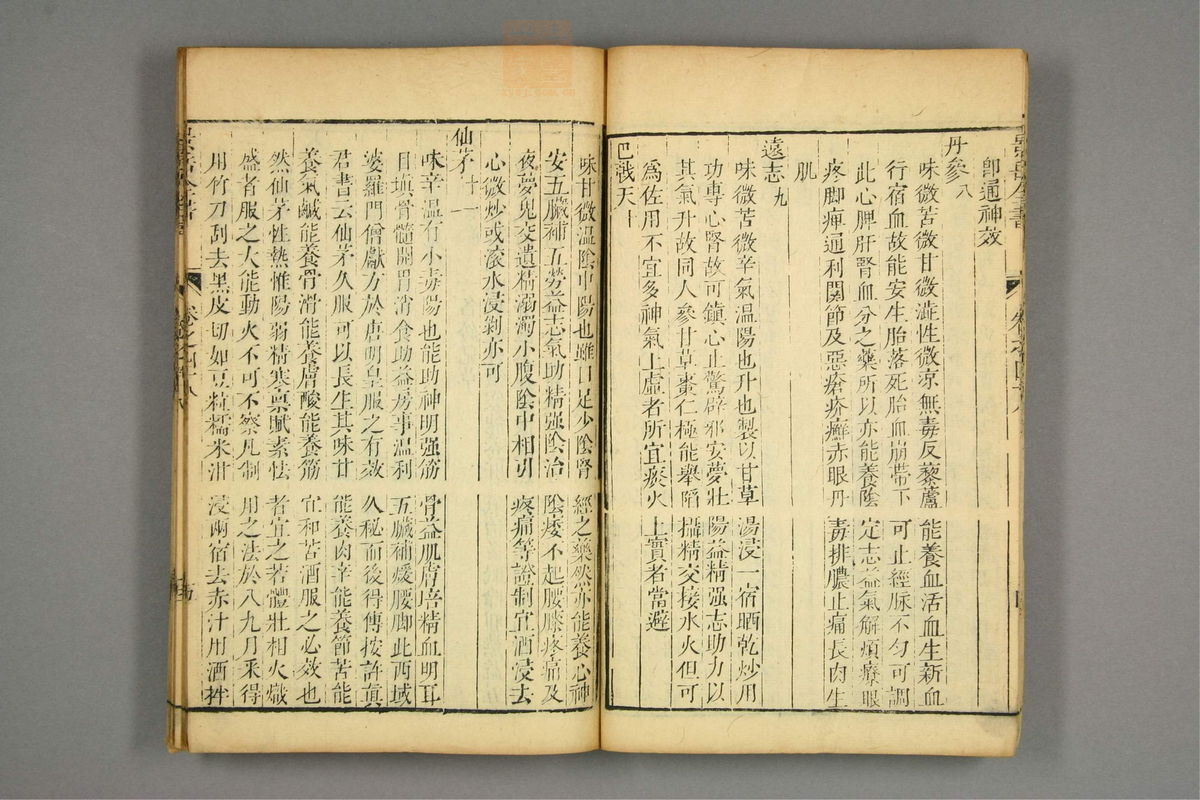 即通神效
丹參八
味微苦微甘微澁性微涼無毒反藜蘆能養血活血生新血
行宿血故能安生胎落死胎血崩帶下可止經脉不勻可調
此心脾肝腎血分之藥所以亦能養陰定志益氣解煩療眼
疼脚痺通利關節及惡瘡疥癬赤眼丹毒排膿止痛長肉生
肌
遠志九
味微苦微辛氣溫陽也升也製以甘草湯浸一宿晒乾炒用
功專心腎故可鎮心止驚辟邪安夢壯陽益精强志助力以
其氣升故同人參甘草棗仁極能舉陷攝精交接水火但可
爲佐用不宜多神氣上虛者所宜痰火上實者當避
巴戟天十
味甘微溫陰中陽也雖曰足少陰腎經之藥然亦能養心神
安五臟補五勞益志氣助精强陰治陰痿不起腰膝疼痛及
夜夢鬼交遺精溺濁小腹陰中相引疼痛等證制宜酒浸去
心微炒或滚水浸剝亦可
仙茅十一
味辛溫有小毒陽也能助神明强筋骨益肌膚培精血明耳
目塡骨髓開胃消食助益房事溫利五臟補煖腰脚此西域
婆羅門僧獻方於唐明皇服之有效久秘而後得傳按許眞
君書云仙茅久服可以長生其味甘能養肉辛能養節苦能
養氣鹹能養骨滑能養膚酸能養筋宜和苦酒服之必效也
然仙茅性熱惟陽弱精寒禀賦素怯者宜之若體壯相火熾
盛者服之大能動火不可不察凡制用之法於八九月采得
用竹刀刮去黑皮切如豆粒糯米泔浸兩宿去赤汁用酒拌
景岳全書
卷之四十八